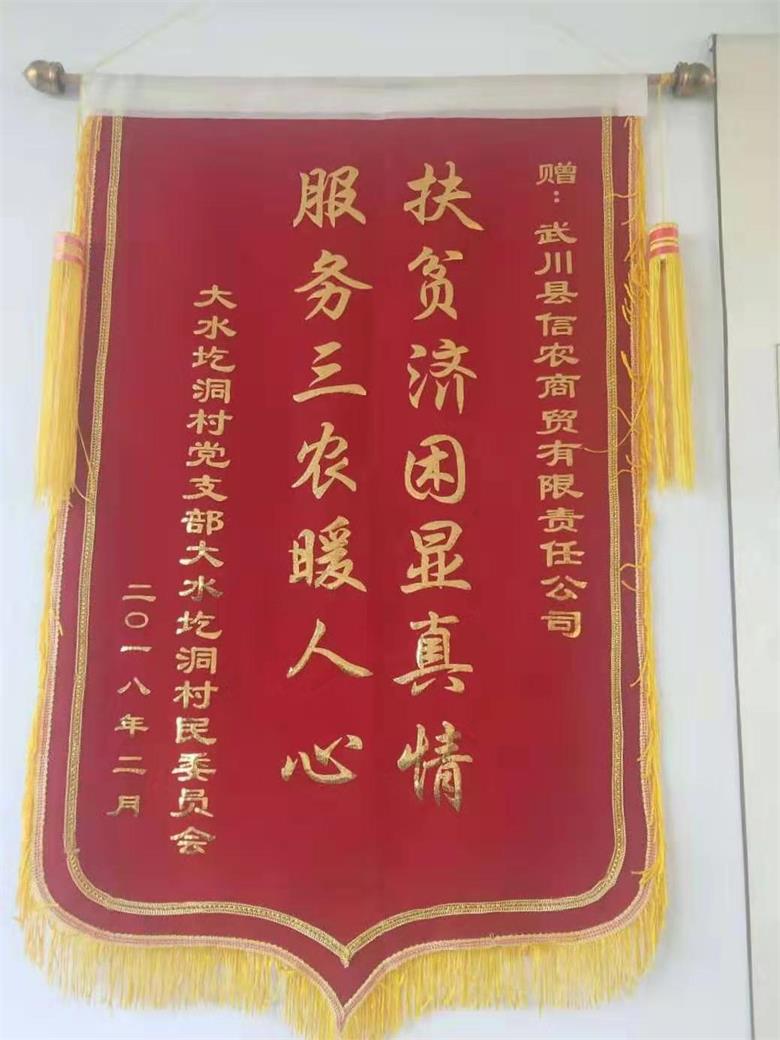 赠：武川县信农商贸有限责任公司
扶贫济困显真情
服务三农暖人心
大水圪洞村党支部大水圪洞村民委员会
二〇一八年二月